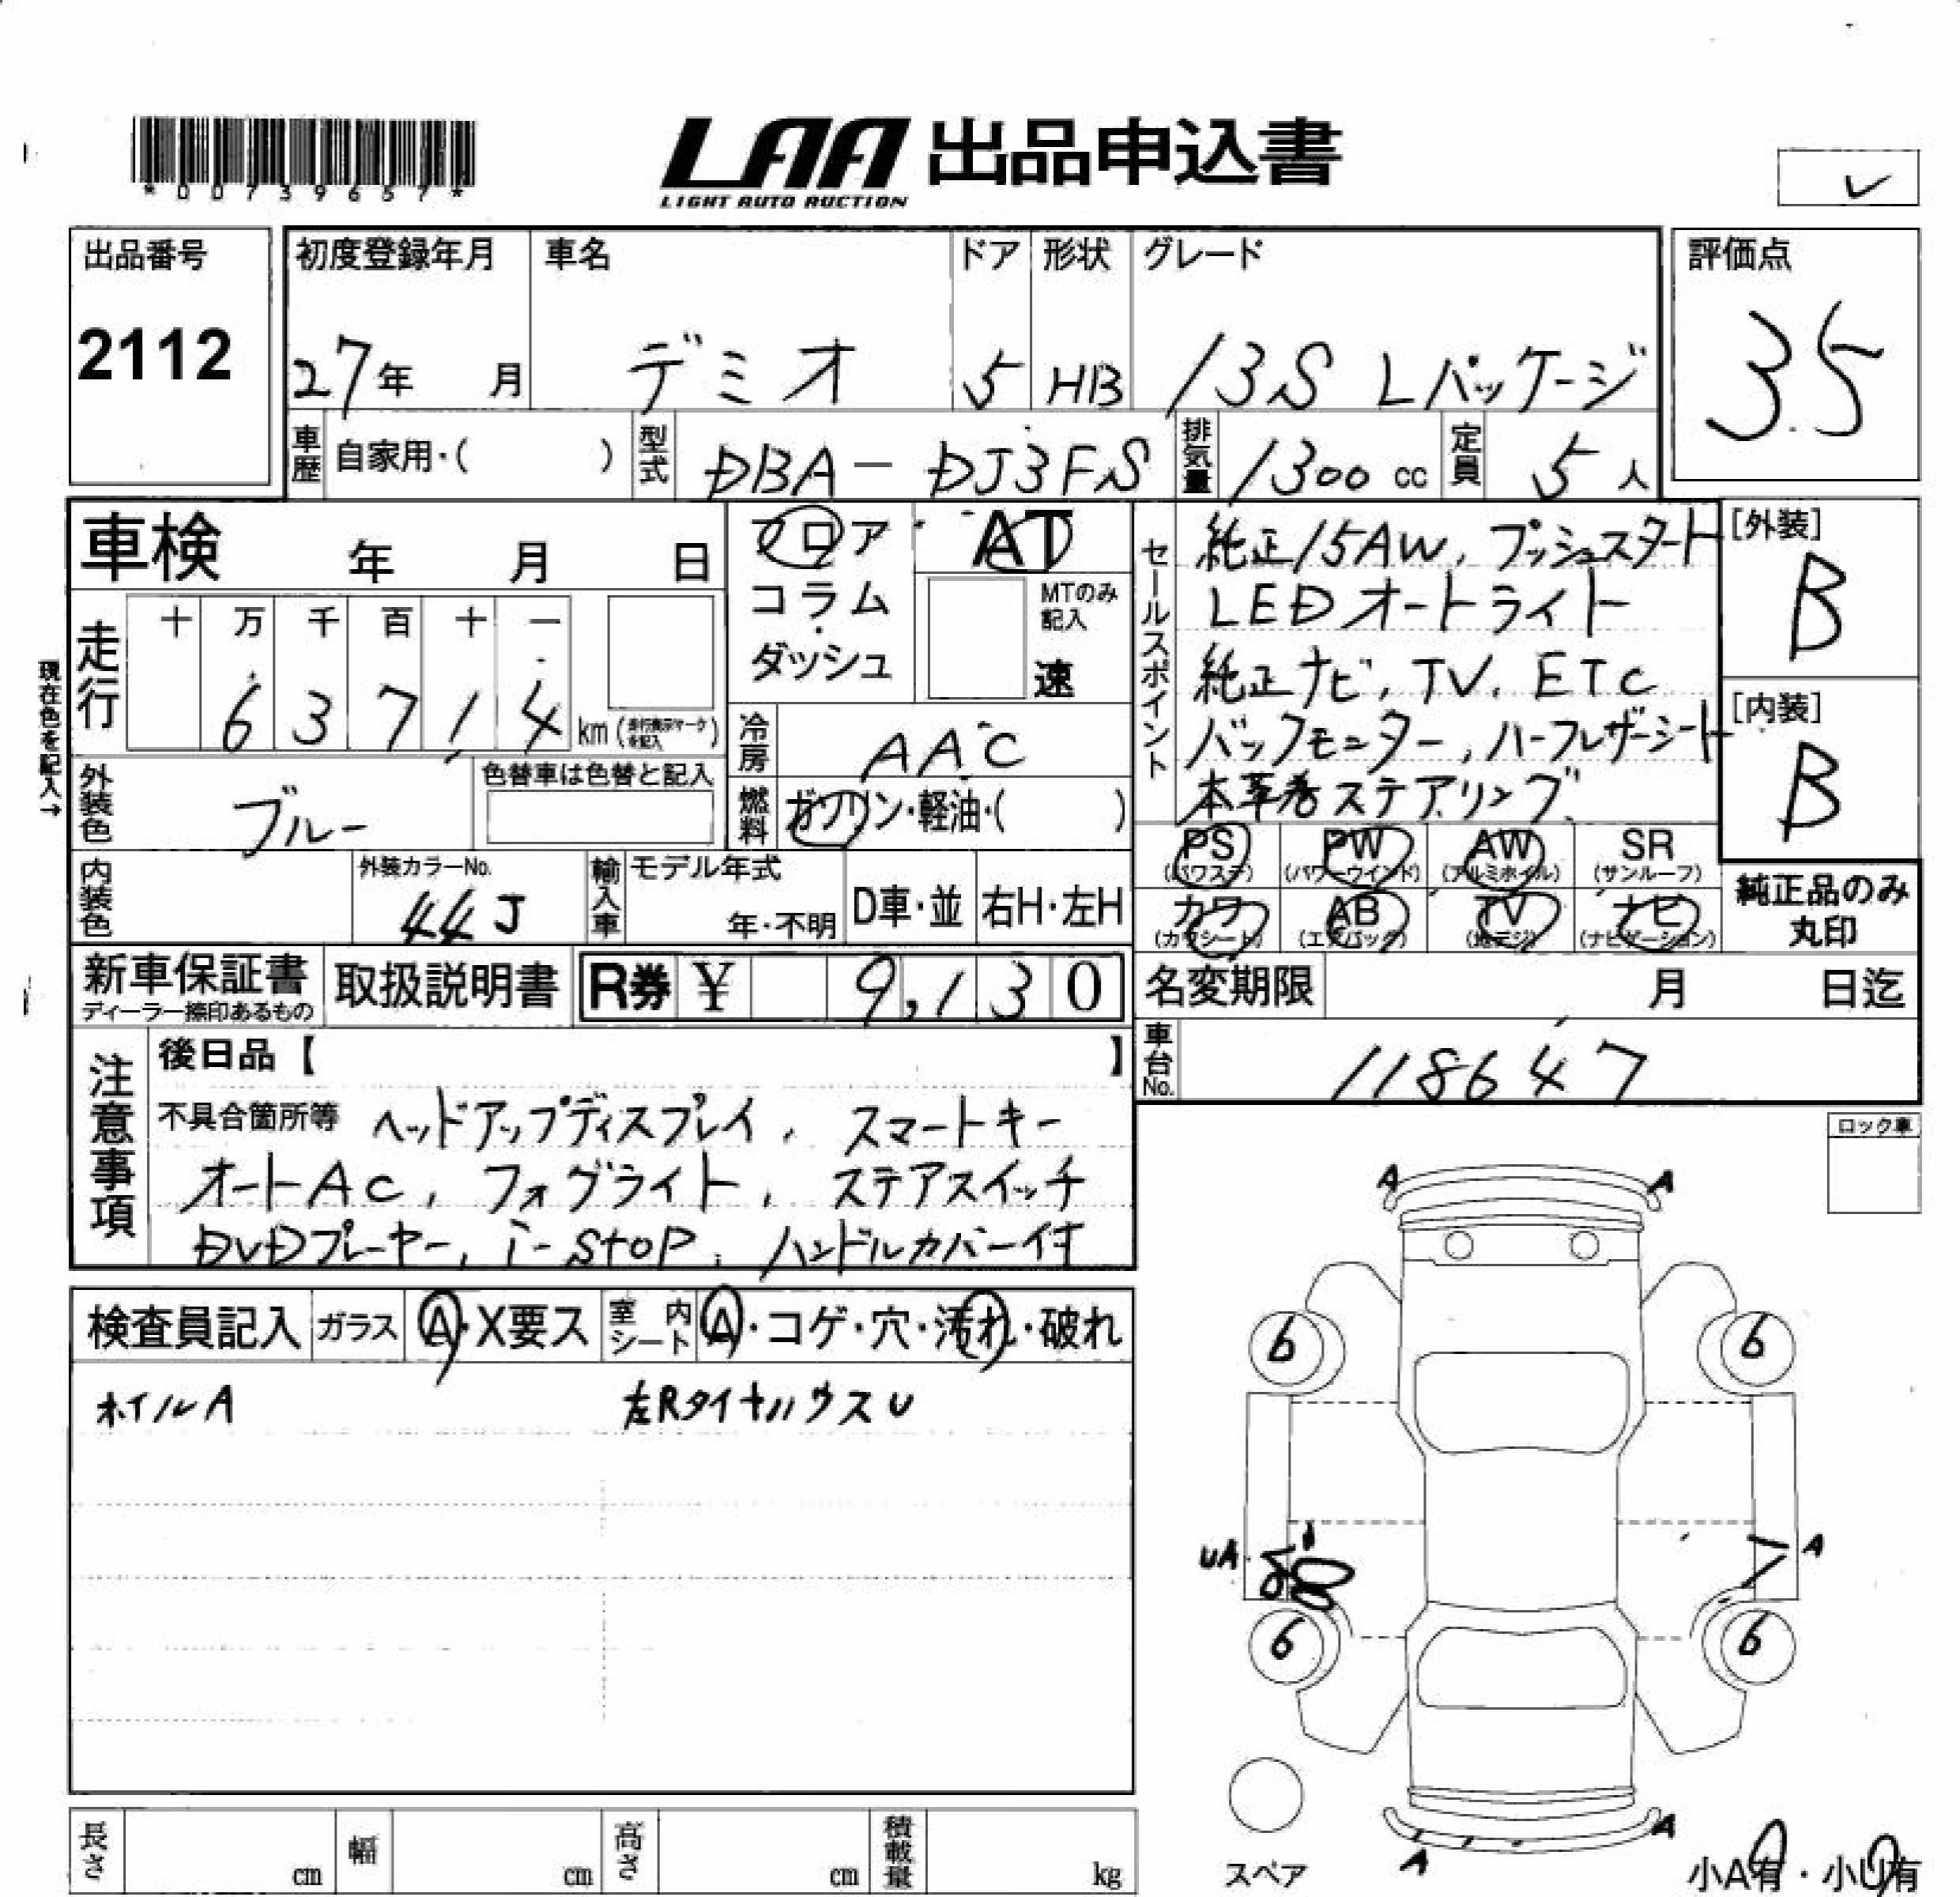 *00739657*
LAA 出品申込書
LIGHT AUTO AUCTION
出品番号
2112
初度登録年月
27年 月
車名
デミオ
ドア
5
形状
HB
グレード
13S Lパッケージ
評価点
3.5
車歴 自家用・( )
型式 DBA-DJ3FS
排気量 1300 cc
定員 5 人
車検 年 月 日
走行
十 万 千 百 十 一
6 3 7 1 4 km
現在色を記入→
外装色 ブルー
色替車は色替と記入
内装色
外装カラーNo.
44J
輸入車 モデル年式
年・不明
D車・並
右H・左H
フロア
コラム
・
ダッシュ
AT
MTのみ
記入
速
冷房 AAC
燃料 ガソリン・軽油・( )
セールスポイント
純正15AW, プッシュスタート
LEDオートライト
純正ナビ, TV, ETC
バックモニター, ハーフレザーシート
本革巻ステアリング
[外装]
B
[内装]
B
PS PW AW SR
(パワステ) (パワーウインド) (アルミホイル) (サンルーフ)
カワ AB TV ナビ
(カワシート) (エアバック) (地デジ) (ナビゲーション)
純正品のみ
丸印
新車保証書
ディーラー捺印あるもの
取扱説明書
R券 ¥ 9,130
名変期限 月 日迄
車台No. 118647
注意事項
後日品【 】
不具合箇所等 ヘッドアップディスプレイ, スマートキー
オートAC, フォグライト, ステアスイッチ
DVDプレーヤー, i-stop, ハンドルカバー付
検査員記入 ガラス A・X要ス 室内シート A・コゲ・穴・汚れ・破れ
ホイルA 左RタイヤハウスU
ロック車
A A
6 6
UA A
6 6
A A
スペア
小A有・小U有
長さ cm 幅 cm 高さ cm 積載量 kg